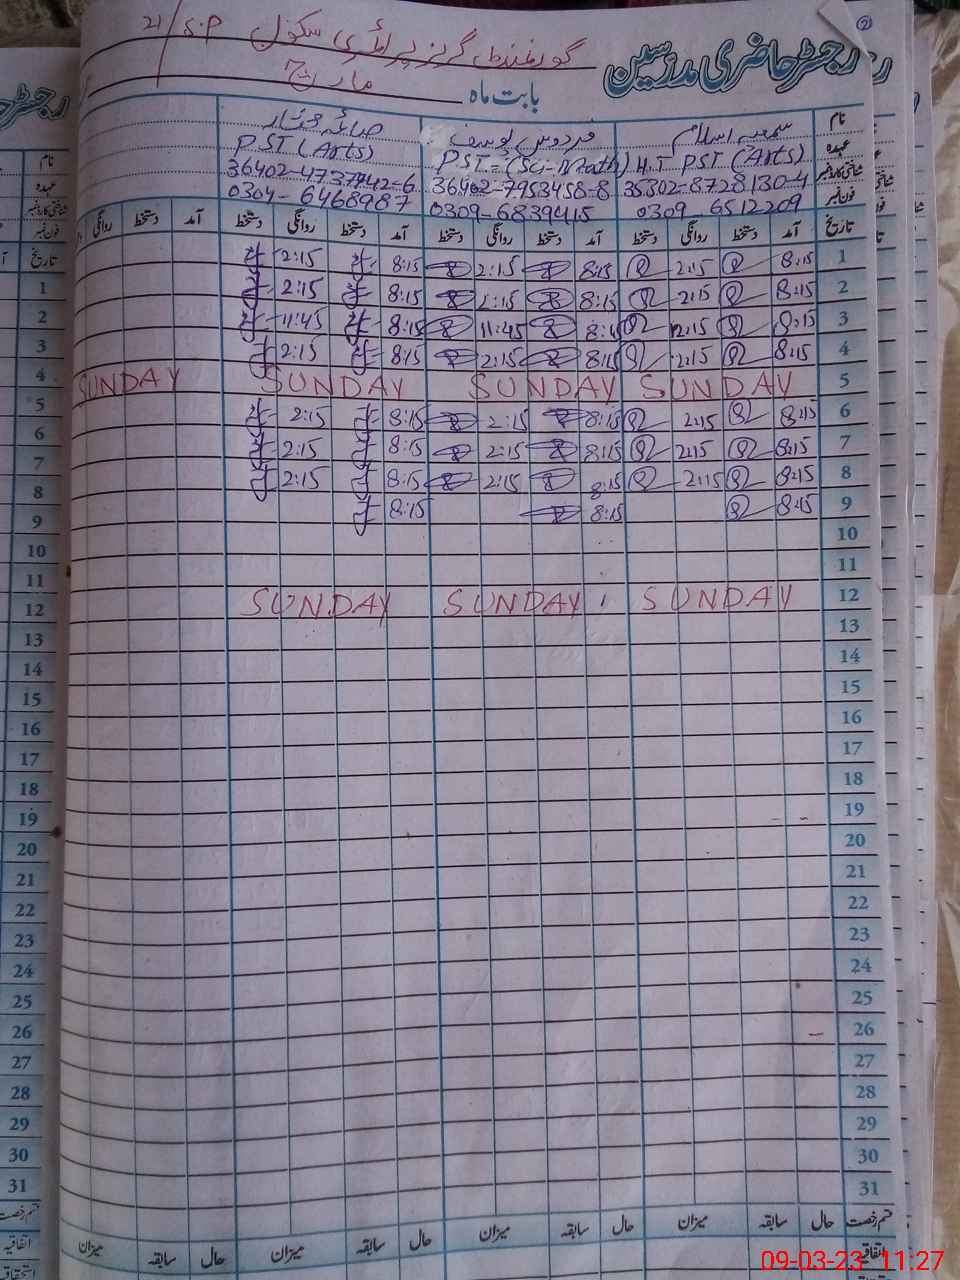 رجسٹر حاضری مدرسین
گورنمنٹ گرلز پرائمری سکول 21/S.P
بابت ماہ مارچ
نام سمعیہ اسلام فردوس یوسف صائمہ مختار
عہدہ H.T PST (Arts) PST = (Sci-Math) PST (Arts)
شناختی کارڈ نمبر 35302-8728130-4 36402-7953458-8 36402-4737942-6
فون نمبر 0309-6512209 0309-6839415 0304-6468987
تاریخ آمد دستخط روانگی دستخط آمد دستخط روانگی دستخط آمد دستخط روانگی دستخط آمد دستخط روانگی
1 8:15 2:15 8:15 2:15 8:15 2:15
2 8:15 2:15 8:15 2:15 8:15 2:15
3 8:15 12:15 8:15 11:45 8:15 11:45
4 8:15 2:15 8:15 2:15 8:15 2:15
5 SUNDAY SUNDAY SUNDAY SUNDAY
6 8:15 2:15 8:15 2:15 8:15 2:15
7 8:15 2:15 8:15 2:15 8:15 2:15
8 8:15 2:15 8:15 2:15 8:15 2:15
9 8:15 8:15 8:15
10
11
12 SUNDAY SUNDAY SUNDAY
13
14
15
16
17
18
19
20
21
22
23
24
25
26
27
28
29
30
31
قسم رخصت حال سابقہ میزان حال سابقہ میزان حال سابقہ میزان حال سابقہ میزان
اتفاقیہ
09-03-23 11:27